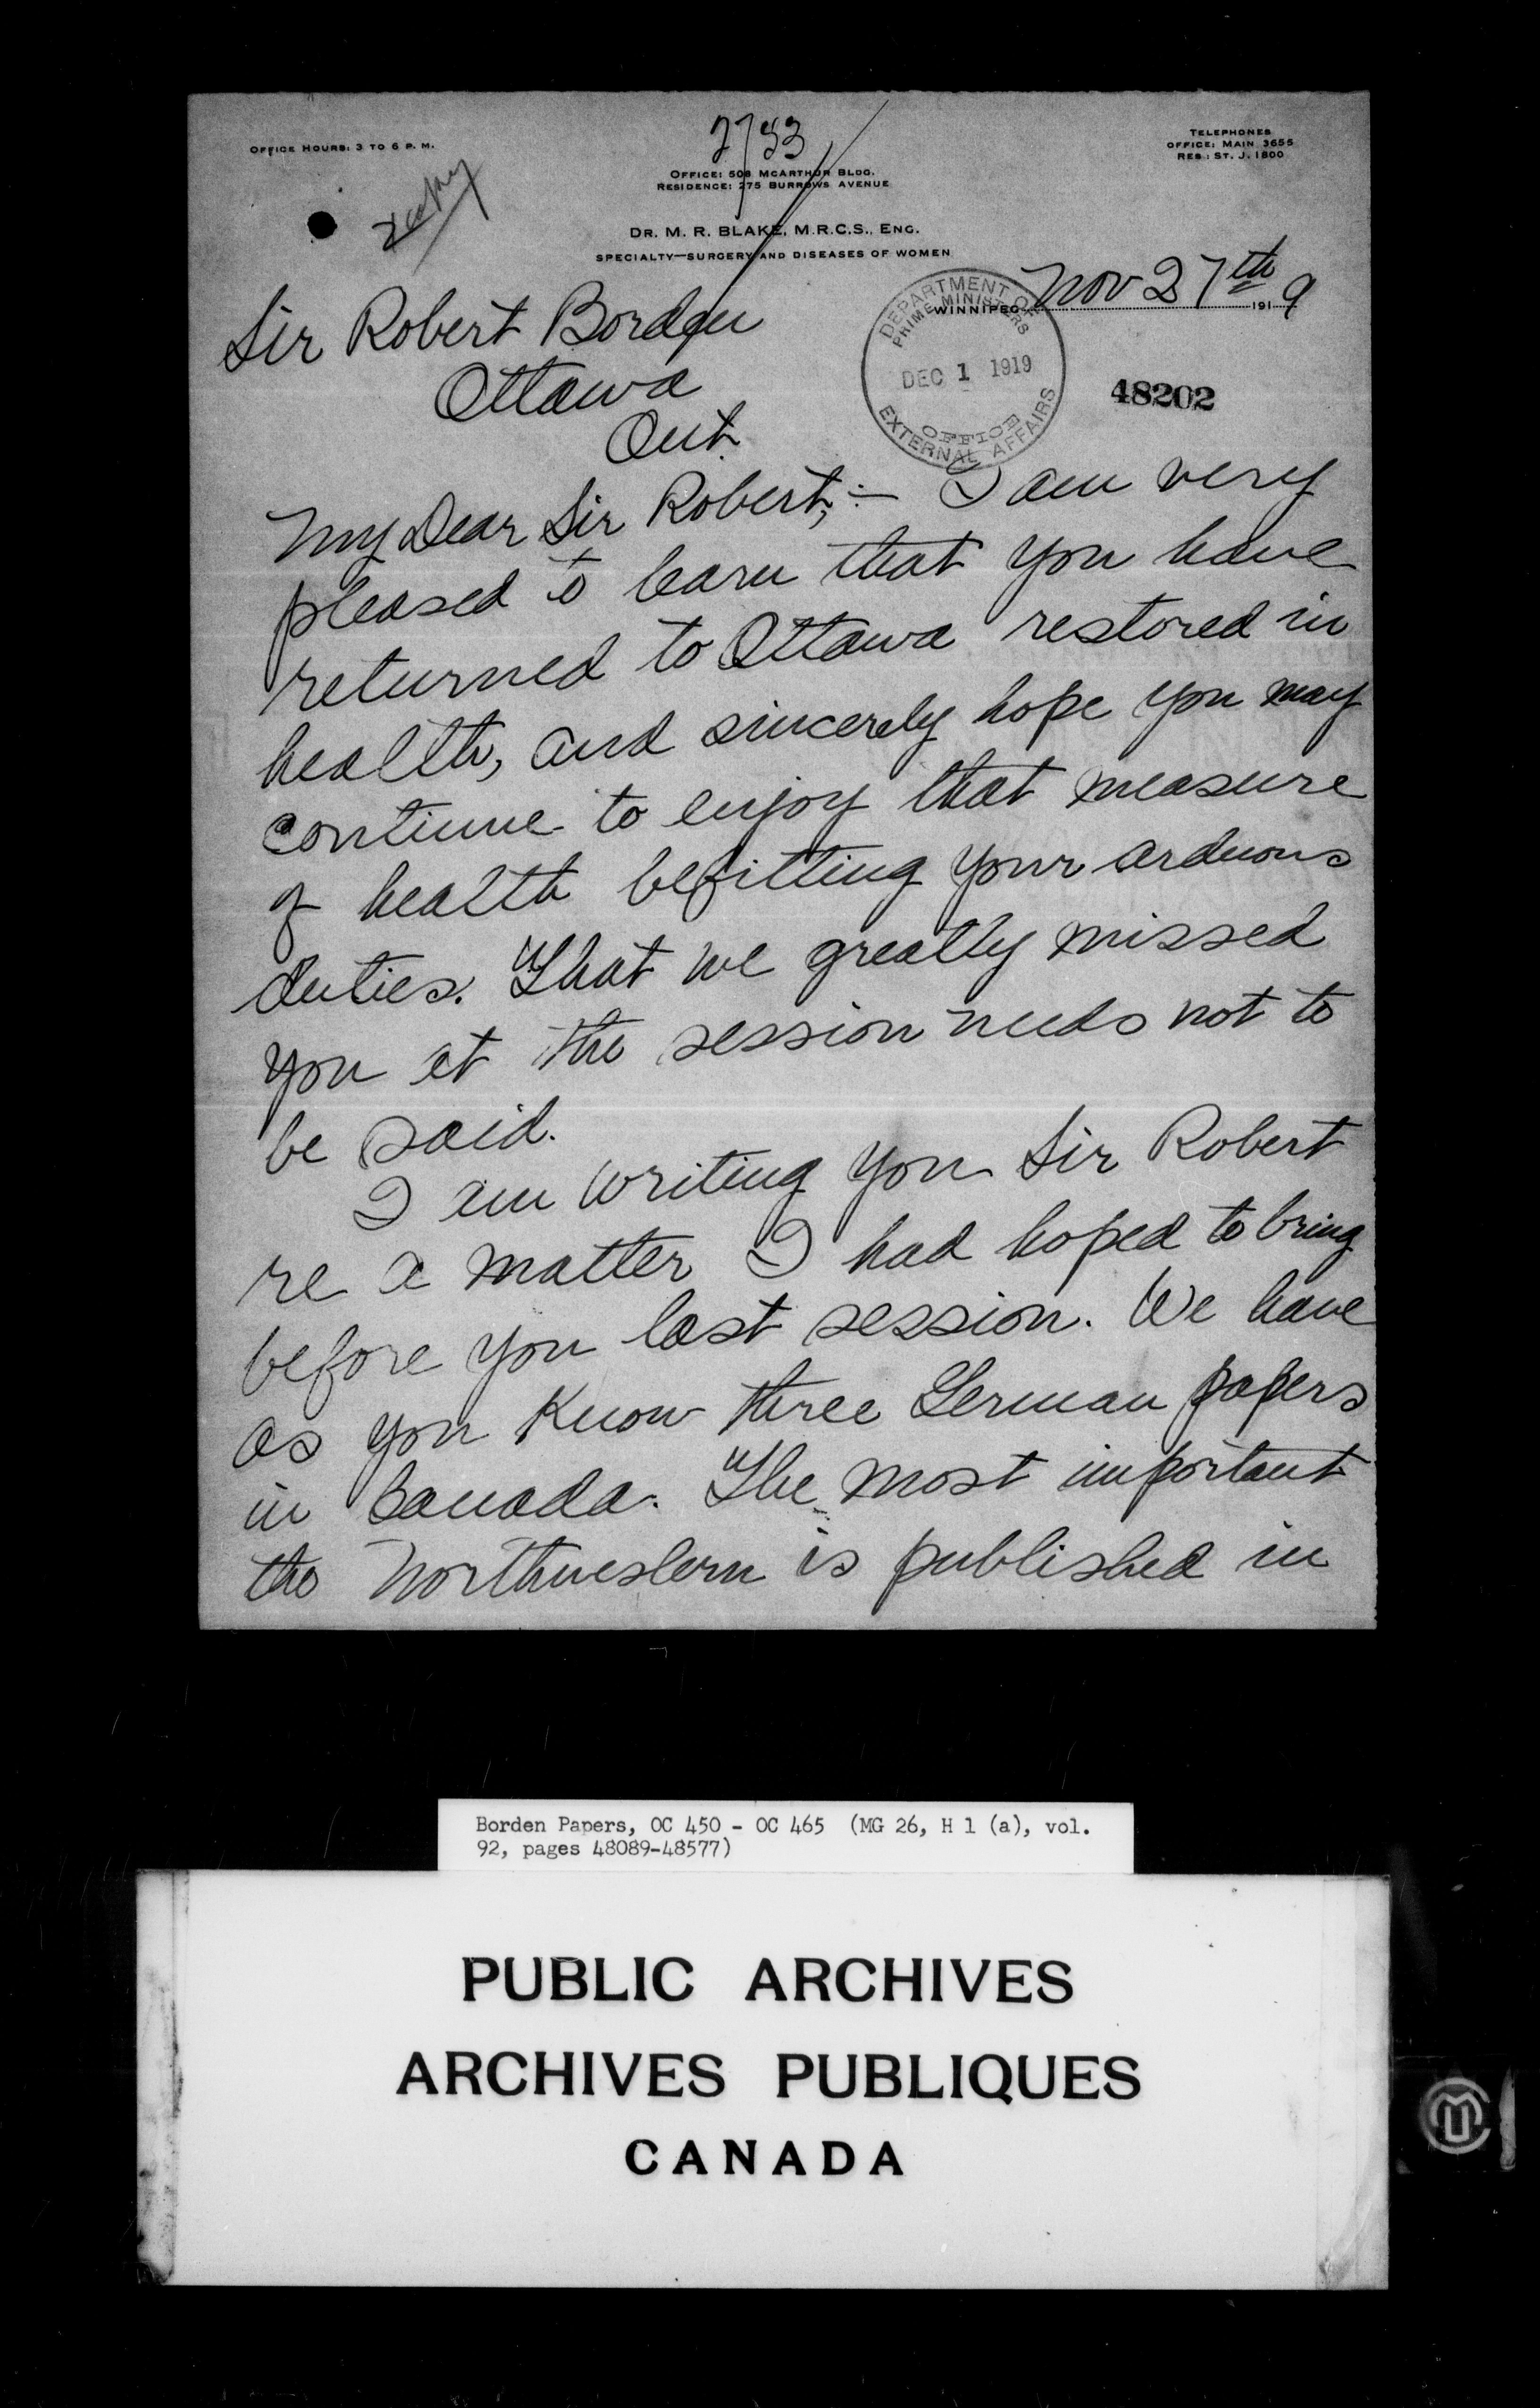 OFFICE HOURS: 3 TO 6 P. M.
2783
OFFICE: 508 MCARTHUR BLDG.
RESIDENCE: 275 BURROWS AVENUE
TELEPHONES
OFFICE: MAIN 3655
RES.: ST. J. 1800
DR. M. R. BLAKE, M.R.C.S., ENG.
SPECIALTY—SURGERY AND DISEASES OF WOMEN
WINNIPEG Nov 27th 1919
DEPARTMENT OF
PRIME MINISTERS
DEC 1 1919
OFFICE
EXTERNAL AFFAIRS
48202
Sir Robert Borden
Ottawa
Ont.
My Dear Sir Robert,:— I am very
pleased to learn that you have
returned to Ottawa restored in
health, and sincerely hope you may
continue to enjoy that measure
of health befitting your arduous
duties. That we greatly missed
you at the session needs not to
be said.
I am writing you Sir Robert
re a matter I had hoped to bring
before you last session. We have
as you know three German papers
in Canada. The most important
the Northwestern is published in
Borden Papers, OC 450 - OC 465 (MG 26, H 1 (a), vol.
92, pages 48089-48577)
PUBLIC ARCHIVES
ARCHIVES PUBLIQUES
CANADA